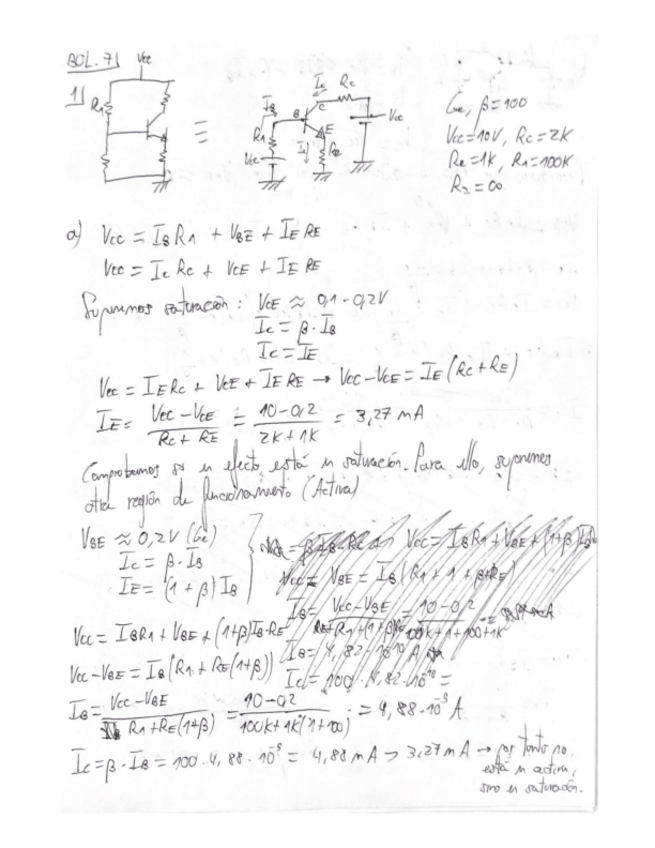 BOL. 7
Vcc
1) R1
≡
IB
R1
Vcc
B
Ic
C
E
IE
Re
Rc
Vcc
Ge, β=100
Vcc=10V, Rc=2K
Re=1K, R1=100K
R2=∞
a) Vcc = IB R1 + VBE + IE RE
Vcc = Ic Rc + VCE + IE RE
Suponemos saturación: VCE ≈ 0,1-0,2V
Ic = β · IB
Ic = IE
Vcc = IE Rc + VCE + IE RE → Vcc-VCE = IE (Rc+RE)
IE = (Vcc - VCE)/(Rc + RE) = (10-0,2)/(2K+1K) = 3,27 mA
Comprobamos si en efecto, está en saturación. Para ello, suponemos
otra región de funcionamiento (Activa)
VBE ≈ 0,2V (Ge)
Ic = β · IB
IE = (1 + β) IB
Vcc = IB R1 + VBE + (1+β)IB·RE
Vcc-VBE = IB (R1 + RE(1+β))
IB = (Vcc - VBE)/(R1+RE(1+β)) = (10-0,2)/(100K+1K(1+100)) = 4,88·10⁻⁵ A
Ic = β · IB = 100 · 4,88 · 10⁻⁵ = 4,88 mA > 3,27 mA → por tanto no
está en activa,
sino en saturación.